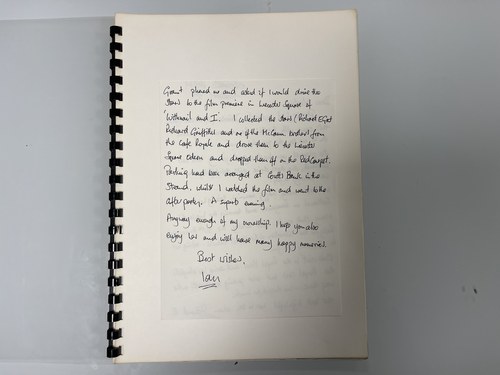 Grant phoned me and asked if I would drive the
stars to the film premiere in Leicester Square of
'Withnail and I'. I collected the stars (Richard E Grant
Richard Griffiths and one of the McGann brothers) from
the Cafe Royale and drove them to the Leicester
Square odeon and dropped them off on the Red Carpet.
Parking had been arranged at Coutts Bank in the
Strand, whilst I watched the film and went to the
after party. A superb evening.
Anyway enough of my ownership. I hope you also
enjoy and will have many happy memories.
Best wishes,
Ian